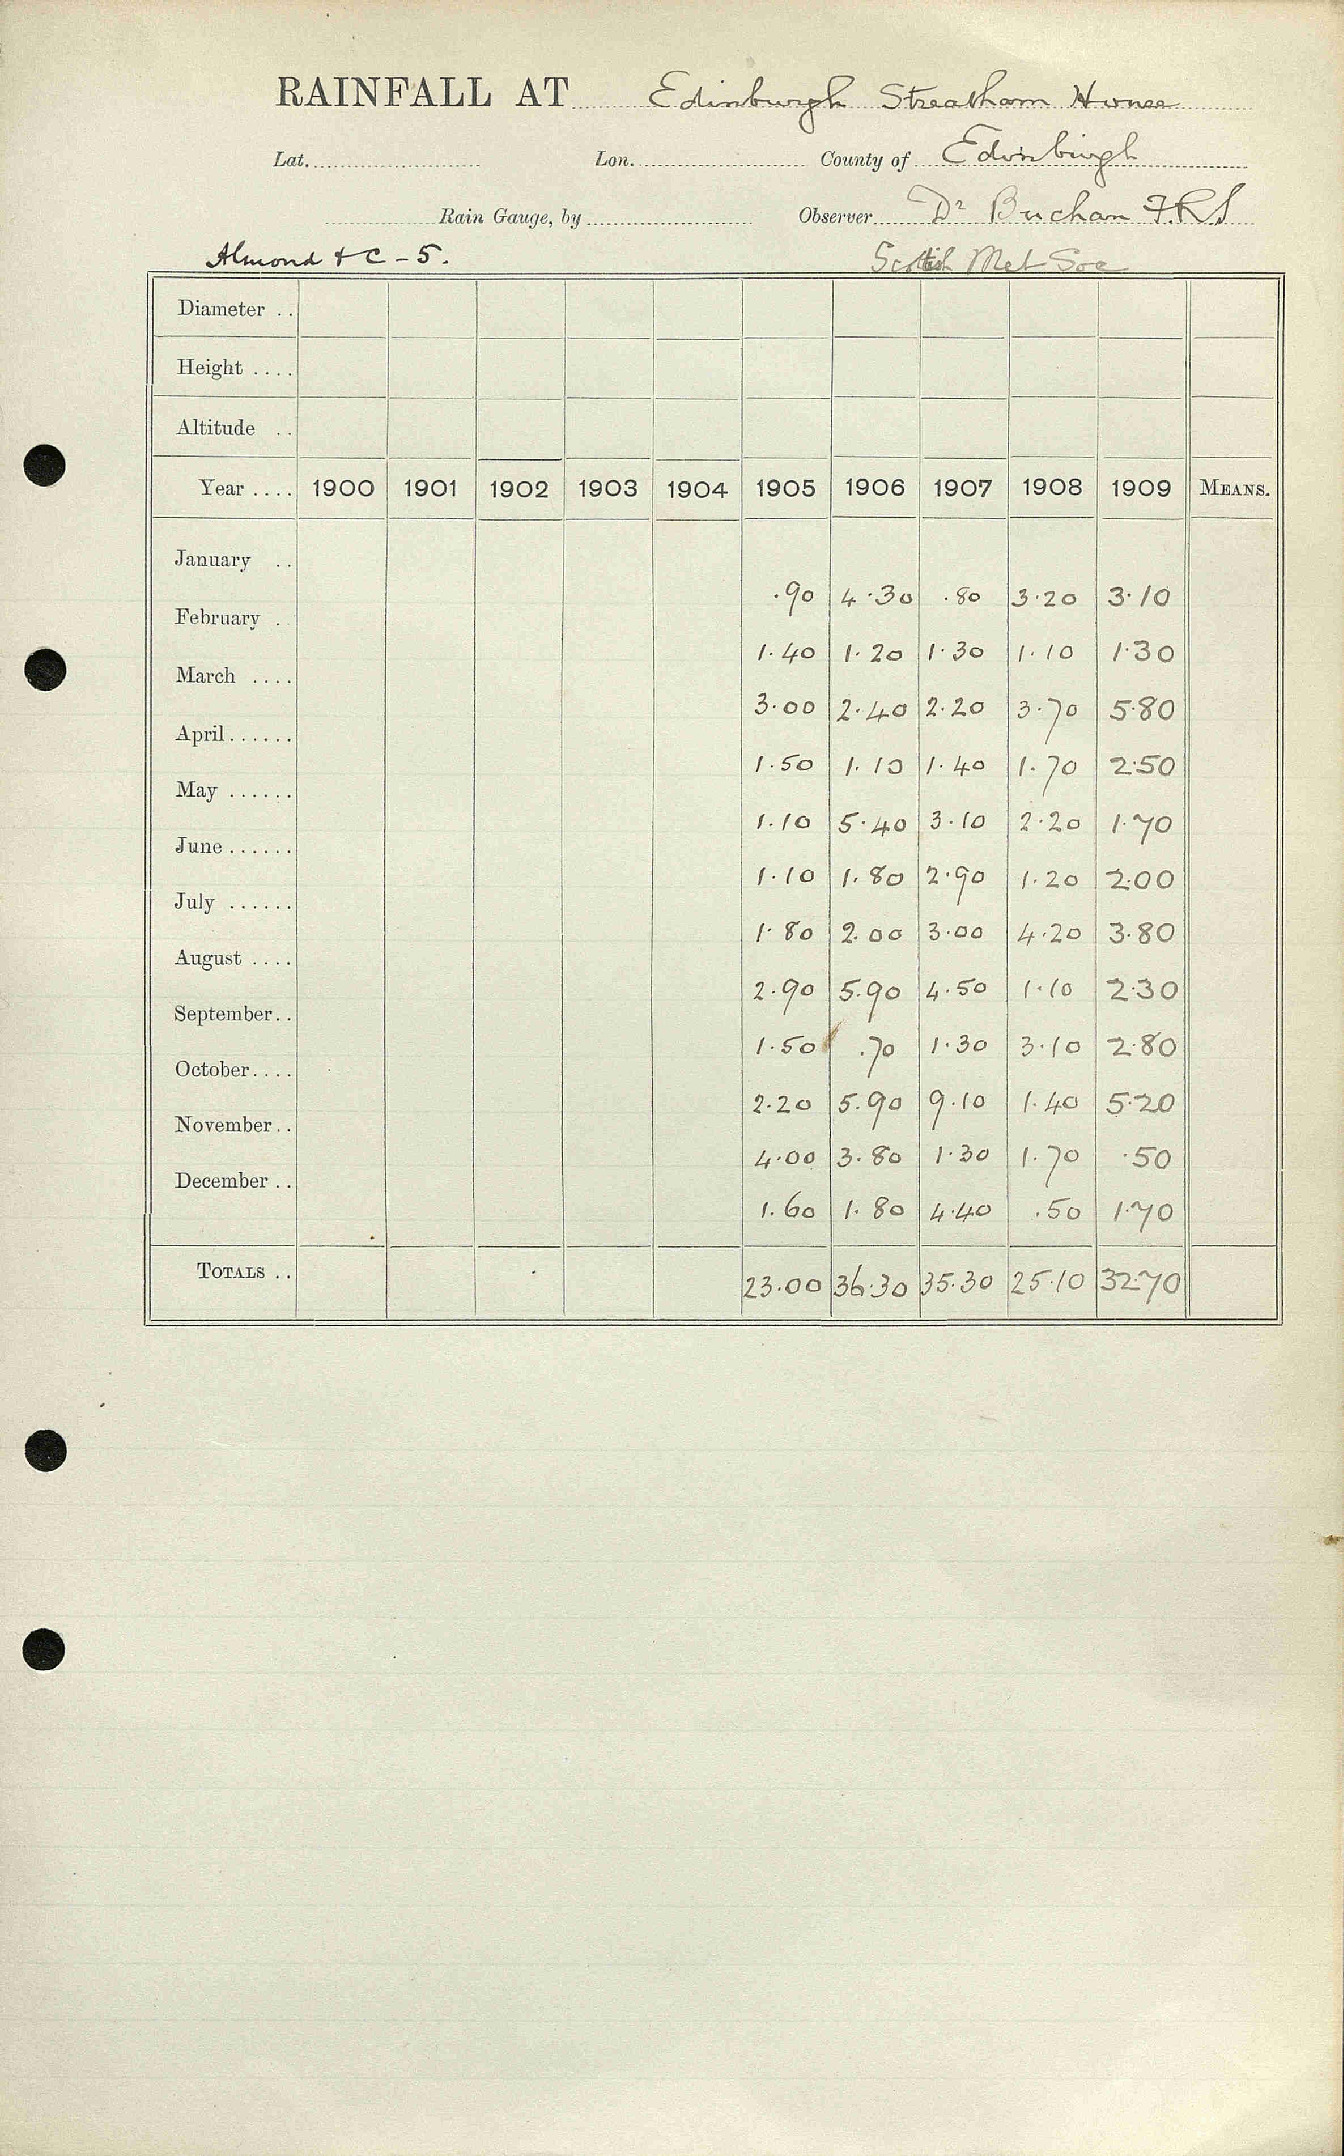 RAINFALL AT Edinburgh Streatham House
Lat. Lon. County of Edinburgh
Rain Gauge, by Observer Dr Buchan F.R.S
Almond & C - 5. Scottish Met Soc
Diameter ..
Height ....
Altitude ..
Year .... 1900 1901 1902 1903 1904 1905 1906 1907 1908 1909 MEANS.
January ..
.90 4.30 .80 3.20 3.10
February .
1.40 1.20 1.30 1.10 1.30
March ....
3.00 2.40 2.20 3.70 5.80
April ......
1.50 1.10 1.40 1.70 2.50
May ......
1.10 5.40 3.10 2.20 1.70
June ......
1.10 1.80 2.90 1.20 2.00
July ......
1.80 2.00 3.00 4.20 3.80
August ....
2.90 5.90 4.50 1.10 2.30
September..
1.50 .70 1.30 3.10 2.80
October....
2.20 5.90 9.10 1.40 5.20
November..
4.00 3.80 1.30 1.70 .50
December ..
1.60 1.80 4.40 .50 1.70
TOTALS .. 23.00 36.30 35.30 25.10 32.70